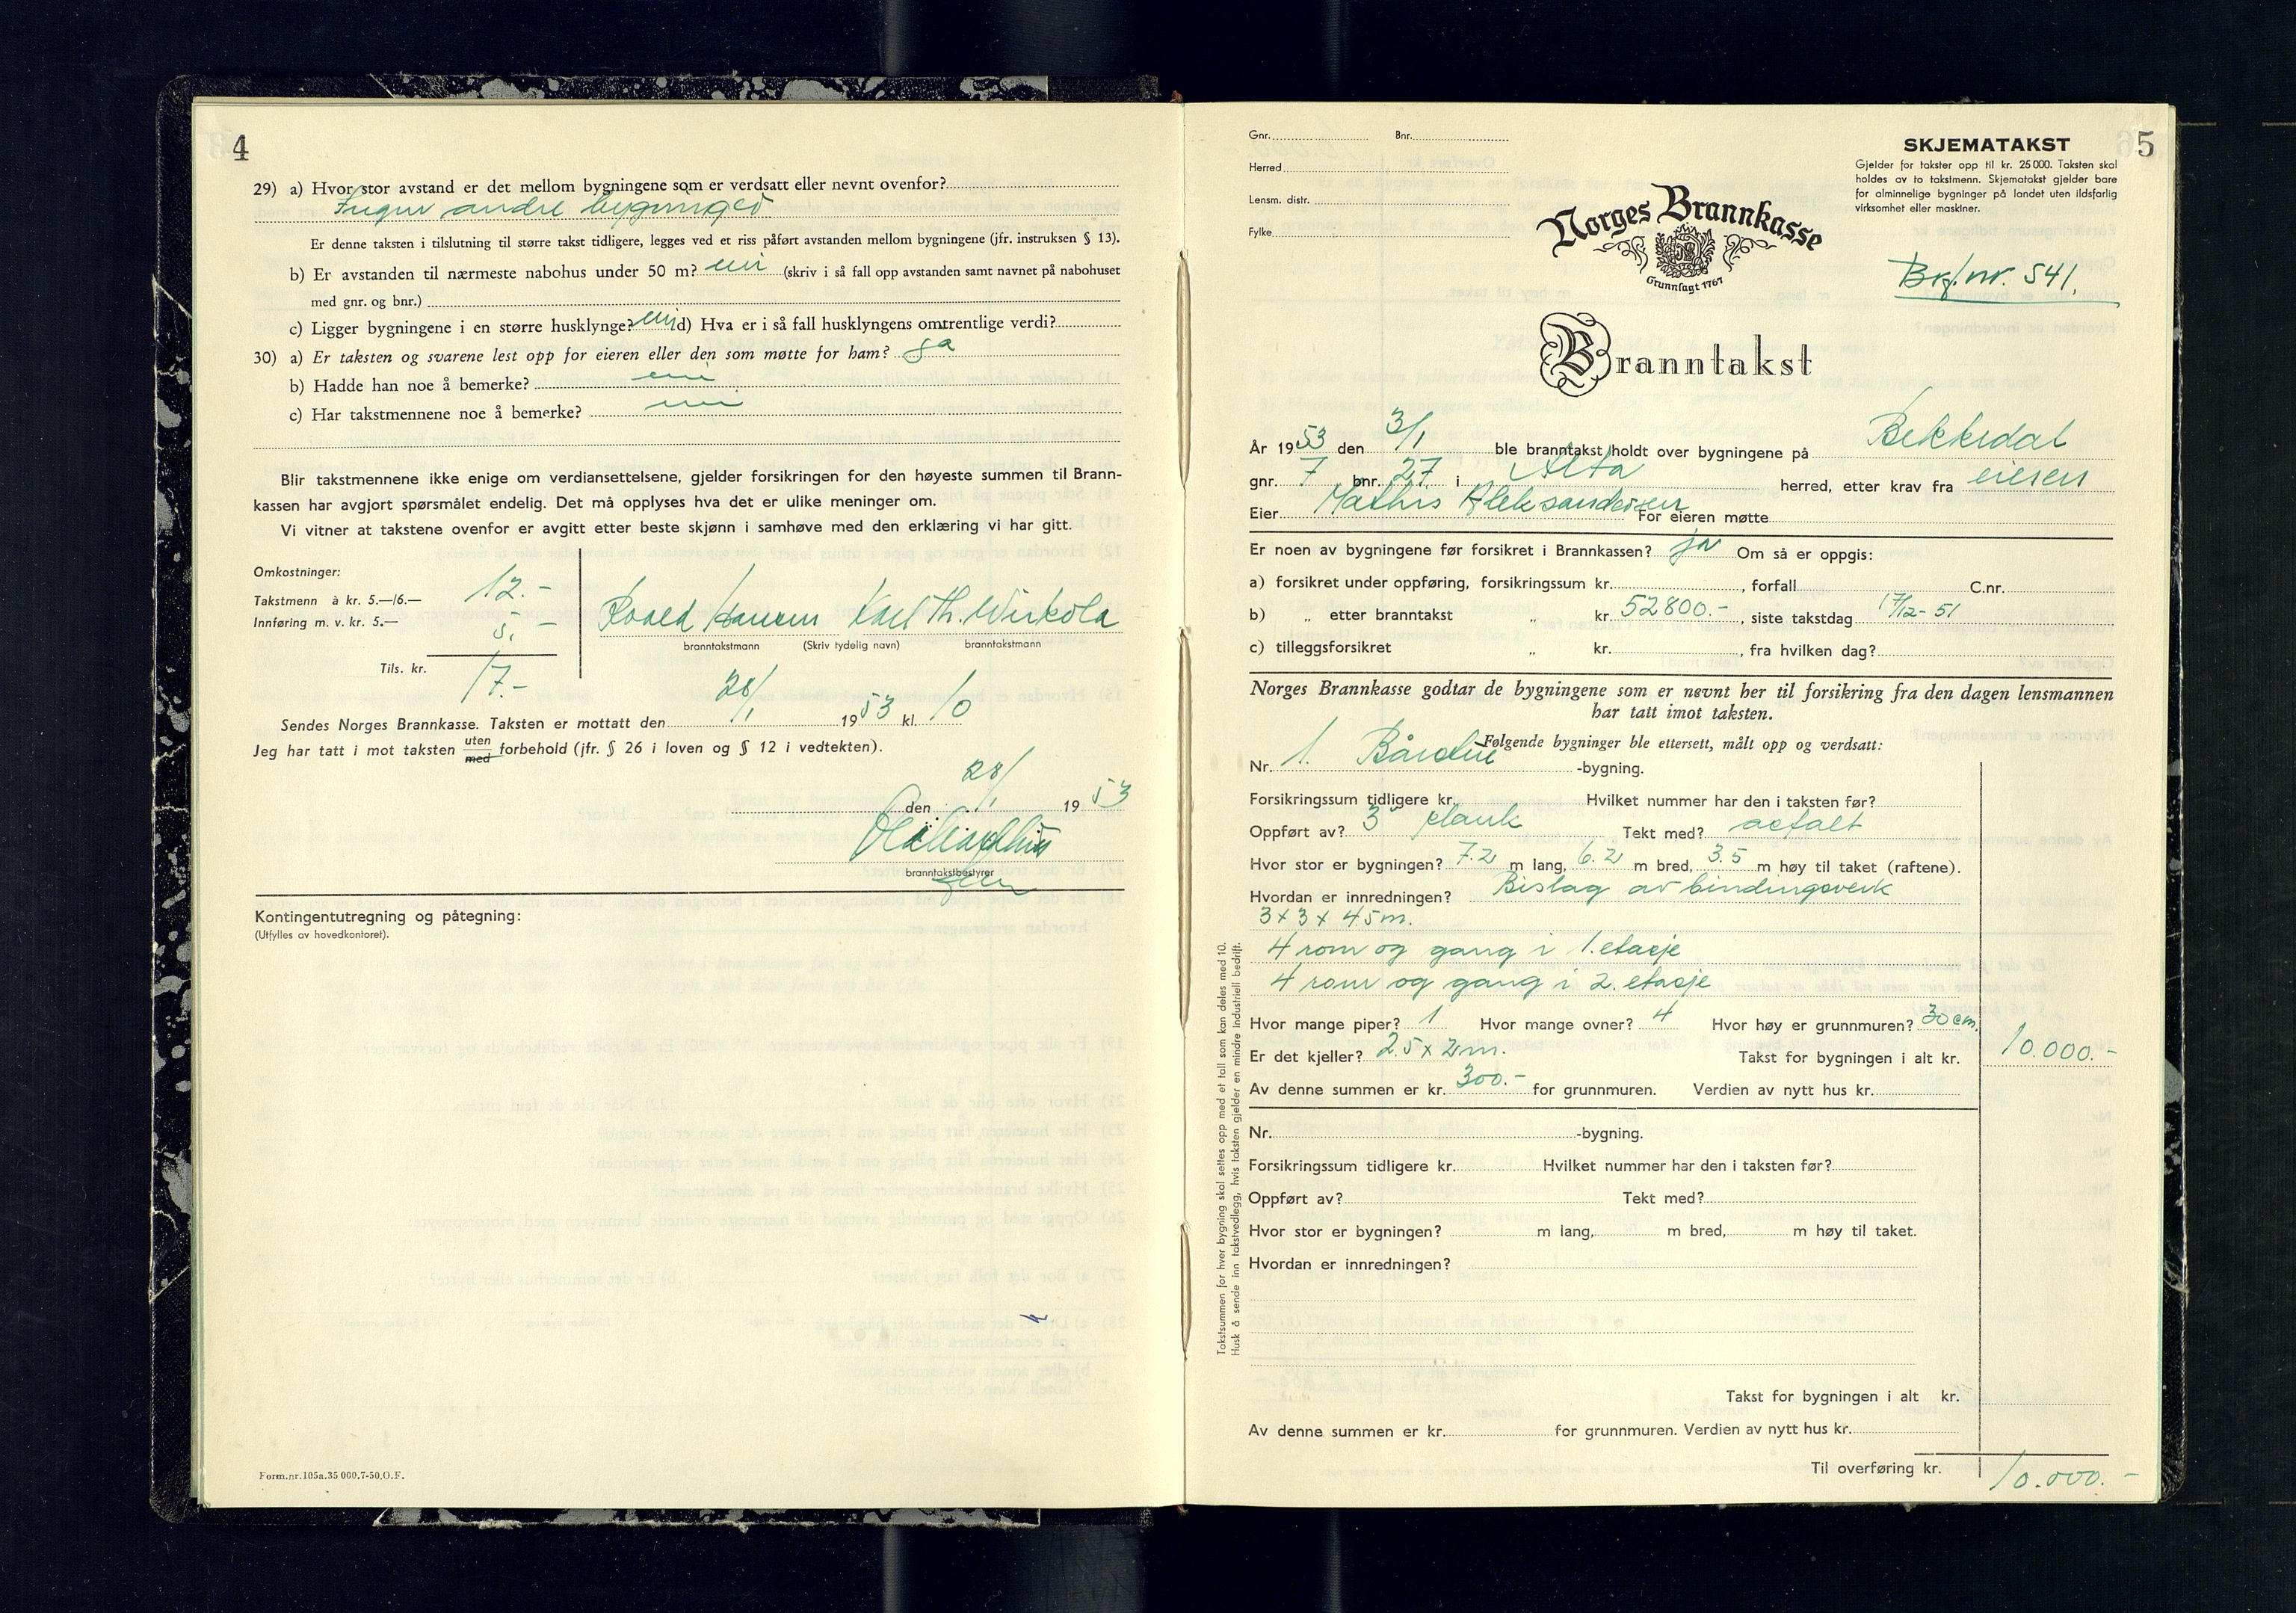 4
29) a) Hvor stor avstand er det mellom bygningene som er verdsatt eller nevnt ovenfor?
Ingen andre bygninger
Er denne taksten i tilslutning til større takst tidligere, legges ved et riss påført avstanden mellom bygningene (jfr. instruksen § 13).
b) Er avstanden til nærmeste nabohus under 50 m? nei (skriv i så fall opp avstanden samt navnet på nabohuset
med gnr. og bnr.)
c) Ligger bygningene i en større husklynge? nei d) Hva er i så fall husklyngens omtrentlige verdi?
30) a) Er taksten og svarene lest opp for eieren eller den som møtte for ham? ja
b) Hadde han noe å bemerke? nei
c) Har takstmennene noe å bemerke? nei
Blir takstmennene ikke enige om verdiansettelsene, gjelder forsikringen for den høyeste summen til Brann-
kassen har avgjort spørsmålet endelig. Det må opplyses hva det er ulike meninger om.
Vi vitner at takstene ovenfor er avgitt etter beste skjønn i samhøve med den erklæring vi har gitt.
Omkostninger:
Takstmenn à kr. 5.—/6.— 12.-
Innføring m. v. kr. 5.— 5.-
Tils. kr. 17.-
Roald Hansen Karl Th. Wirkola
branntakstmann (Skriv tydelig navn) branntakstmann
Sendes Norges Brannkasse. Taksten er mottatt den 28/1 1953 kl. 10
Jeg har tatt i mot taksten uten med forbehold (jfr. § 26 i loven og § 12 i vedtekten).
den 28/1 1953
branntakstbestyrer
Kontingentutregning og påtegning:
(Utfylles av hovedkontoret).
Form.nr.105a.35 000.7-50.O.F.
5
Gnr. Bnr.
Herred
Lensm. distr.
Fylke
SKJEMATAKST
Gjelder for takster opp til kr. 25 000. Taksten skal
holdes av to takstmenn. Skjematakst gjelder bare
for alminnelige bygninger på landet uten ildsfarlig
virksomhet eller maskiner.
Norges Brannkasse
Grunnlagt 1767
Brf. nr. 541.
Branntakst
År 1953 den 3/1 ble branntakst holdt over bygningene på Bekkedal
gnr. 7 bnr. 27 i Alta herred, etter krav fra eieren
Eier Mathis Aleksandersen For eieren møtte
Er noen av bygningene før forsikret i Brannkassen? ja Om så er oppgis:
a) forsikret under oppføring, forsikringssum kr. , forfall C.nr.
b) „ etter branntakst „ kr. 52800.- , siste takstdag 17/12-51
c) tilleggsforsikret „ kr. , fra hvilken dag?
Norges Brannkasse godtar de bygningene som er nevnt her til forsikring fra den dagen lensmannen
har tatt imot taksten.
Følgende bygninger ble ettersett, målt opp og verdsatt:
Nr. 1. -bygning.
Forsikringssum tidligere kr. Hvilket nummer har den i taksten før?
Oppført av? 3" plank Tekt med? asfalt
Hvor stor er bygningen? 7.2 m lang, 6.2 m bred, 3.5 m høy til taket (raftene).
Hvordan er innredningen? Bislag av bindingsverk
3 x 3 x 4.5 m.
4 rom og gang i 1. etasje
4 rom og gang i 2. etasje
Hvor mange piper? 1 Hvor mange ovner? 4 Hvor høy er grunnmuren? 30 cm.
Er det kjeller? 2.5 x 2 m. Takst for bygningen i alt kr. 10.000.-
Av denne summen er kr. 300.- for grunnmuren. Verdien av nytt hus kr.
Nr. -bygning.
Forsikringssum tidligere kr. Hvilket nummer har den i taksten før?
Oppført av? Tekt med?
Hvor stor er bygningen? m lang, m bred, m høy til taket.
Hvordan er innredningen?
Takst for bygningen i alt kr.
Av denne summen er kr. for grunnmuren. Verdien av nytt hus kr.
Til overføring kr. 10.000.-
Takstsummen for hver bygning skal settes opp med et tall som kan deles med 10.
Husk å sende inn takstvedlegg, hvis taksten gjelder en mindre industriell bedrift.